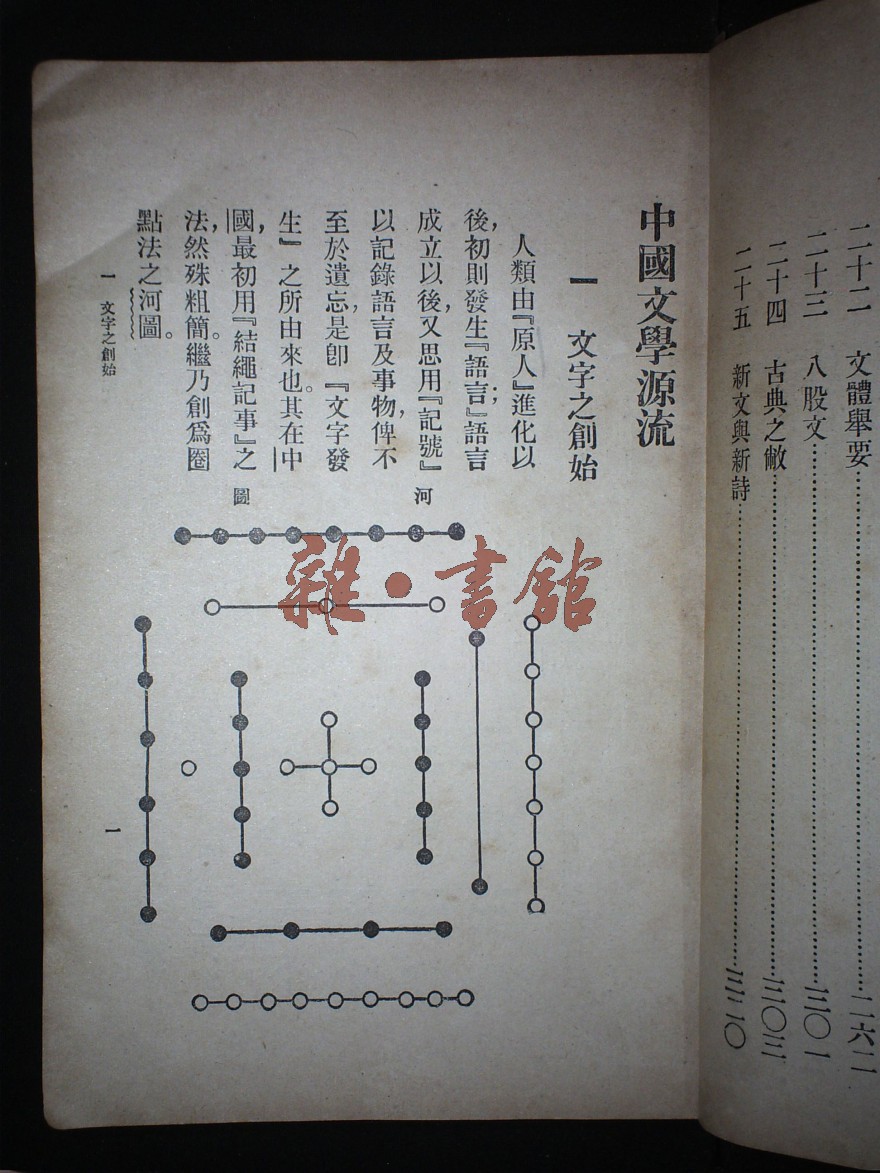 二十二　文體舉要……二六二
二十三　八股文……三〇一
二十四　古典之敝……三〇三
二十五　新文與新詩……三二〇
中國文學源流
一　文字之創始
人類由『原人』進化以
後，初則發生『語言』；語言
成立以後，又思用『記號』
以記錄語言及事物，俾不
至於遺忘，是卽『文字發
生』之所由來也。其在中
國，最初用『結繩記事』之
法，然殊粗簡。繼乃創爲圈
點法之河圖。
河
圖
一　文字之創始
一
雜·書館